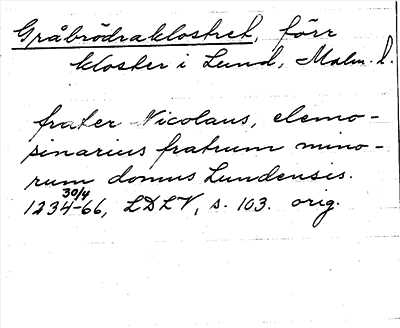 Gråbrödraklostret, förr
kloster i Lund, Malm. l.
frater Nicolaus, elemo-
sinarius fratrum mino-
rum domus Lundensis.
1234-30/4 66, LDLV, s. 103. orig.